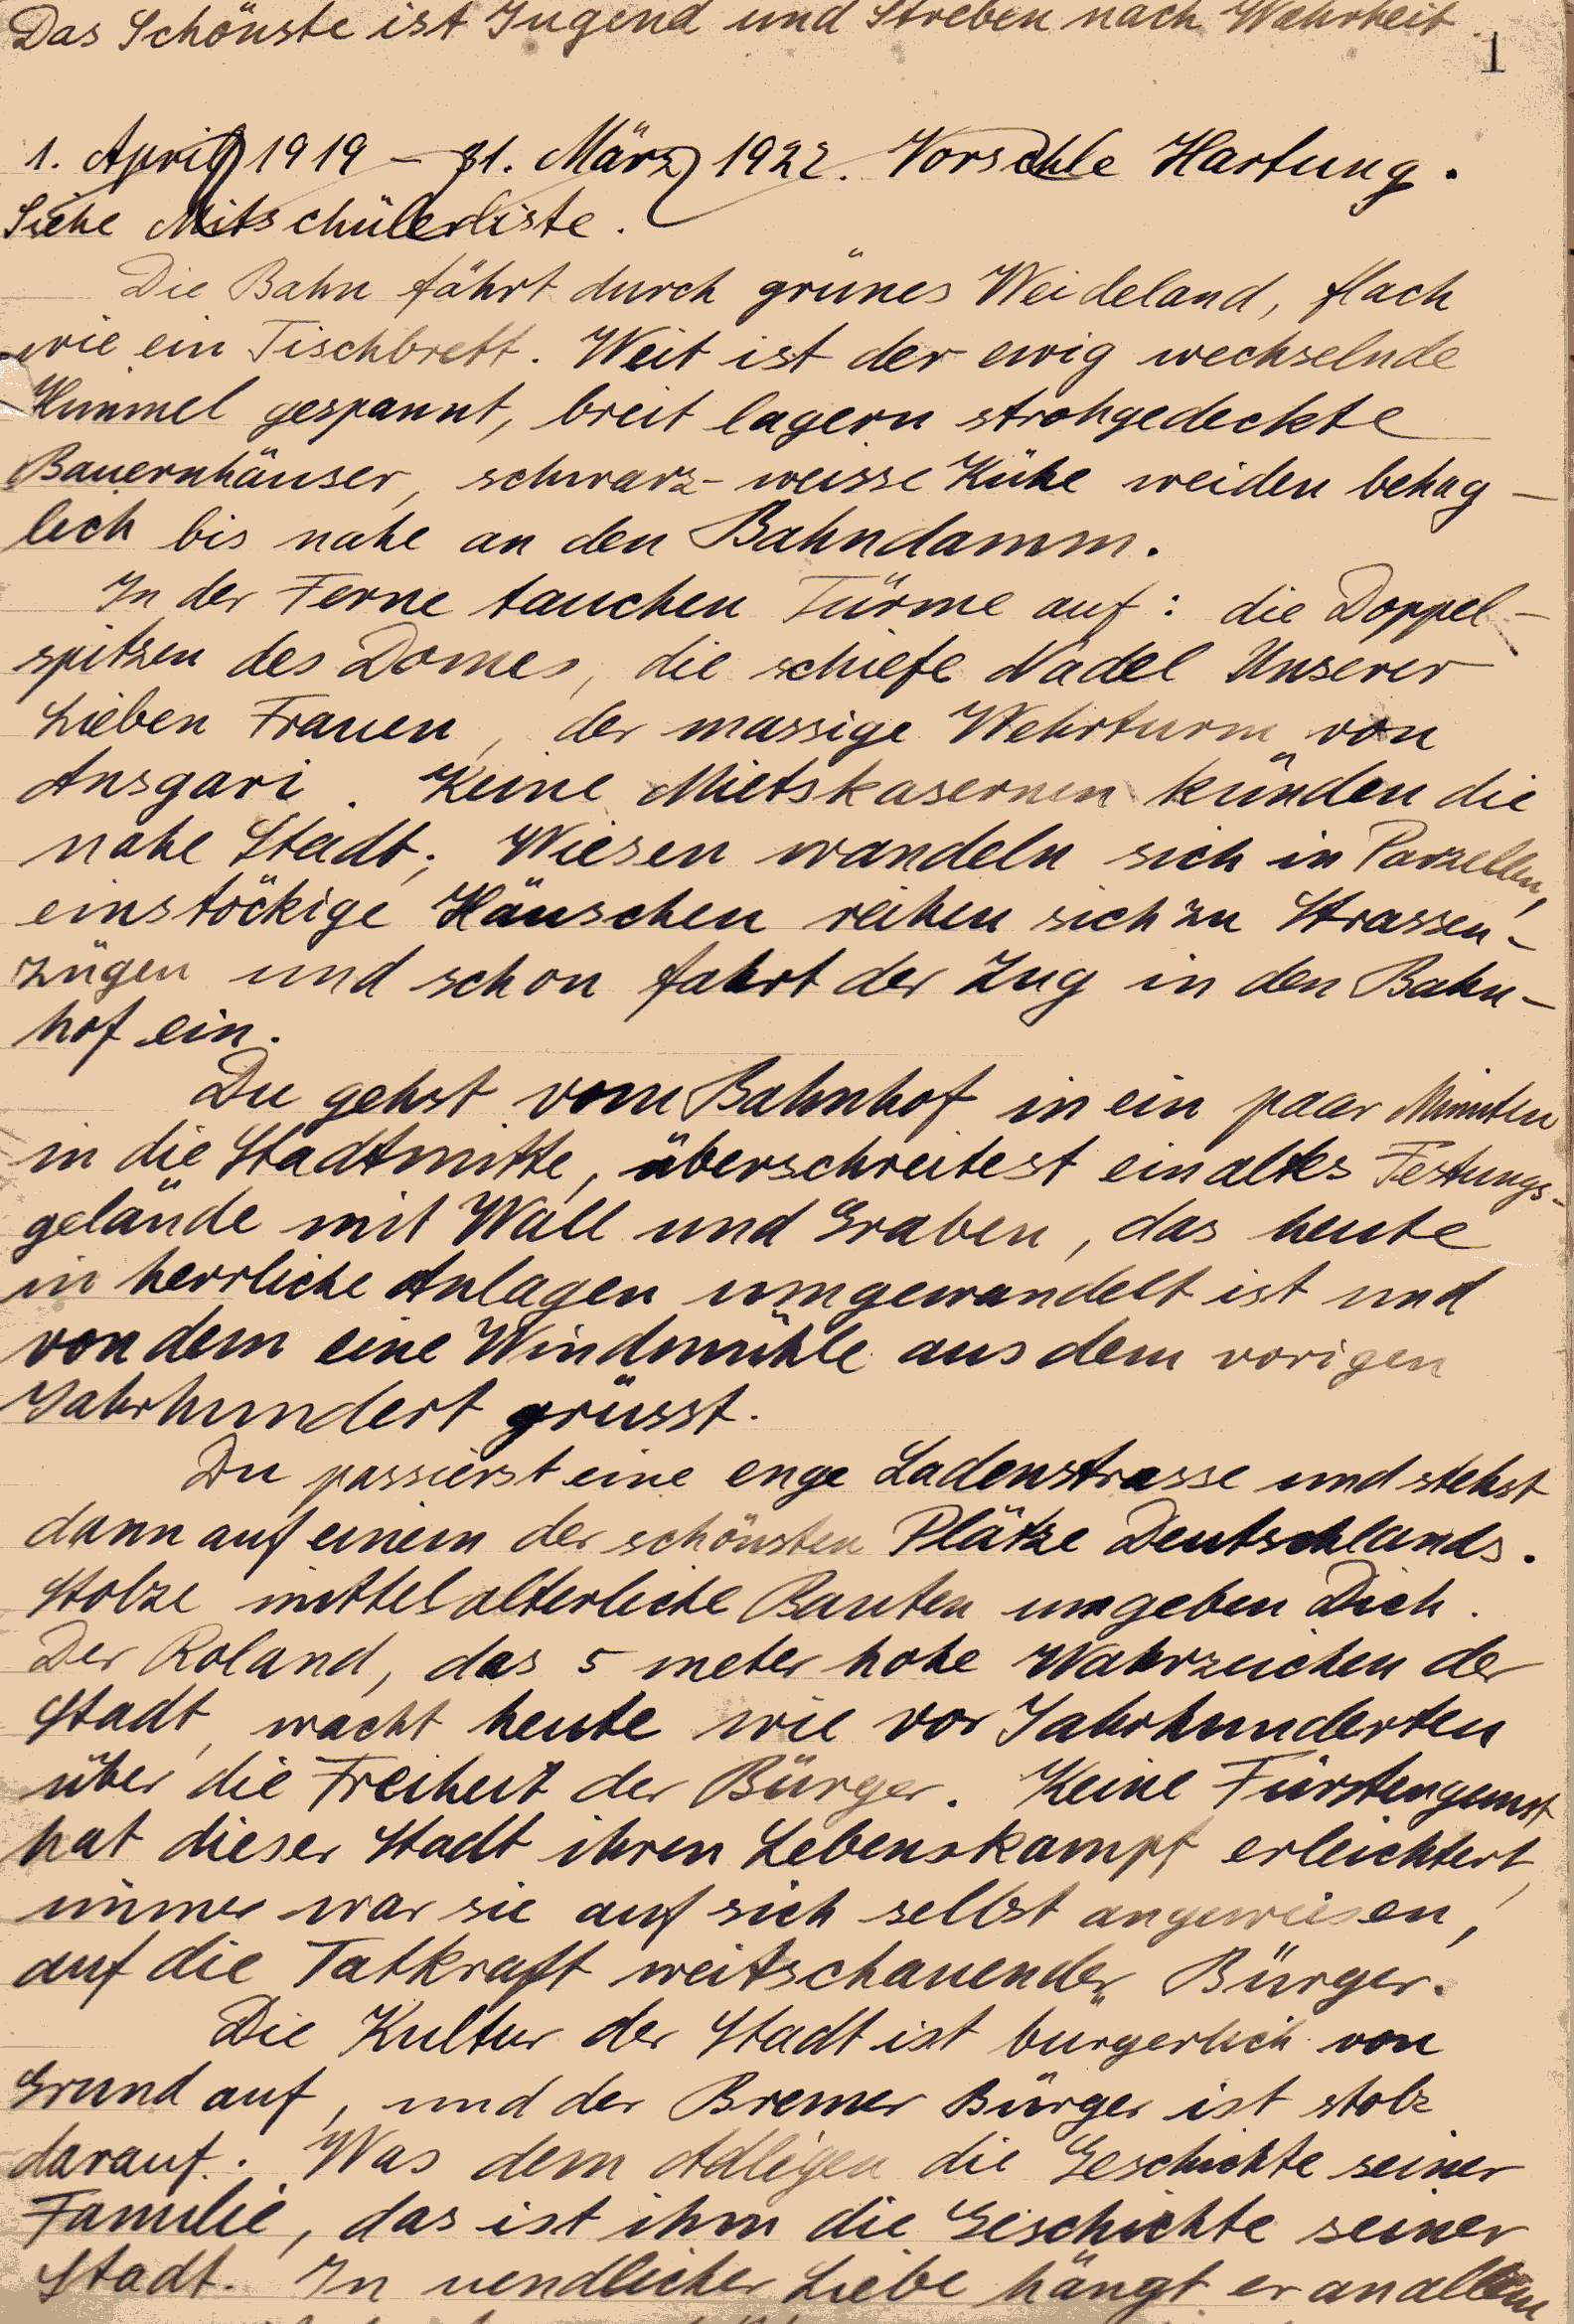 Das Schönste ist Jugend und Streben nach Wahrheit.
1
1. April 1919 – 31. März 1922. Vorschle Hartung.
Siehe Mitschülerliste.
Die Bahn fährt durch grünes Weideland, flach
wie ein Tischbrett. Weit ist der ewig wechselnde
Himmel gespannt, breit lagern strohgedeckte
Bauernhäuser, schwarz-weisse Kühe weiden behag-
lich bis nahe an den Bahndamm.
In der Ferne tauchen Türme auf: die Doppel-
spitzen des Domes, die schiefe Nadel Unserer
Lieben Frauen, der massige Wehrturm von
Ansgari. Keine Mietskasernen künden die
nahe Stadt; Wiesen wandeln sich in Parzellen,
einstöckige Häuschen reihen sich zu Strassen-
zügen und schon fahrt der Zug in den Bahn-
hof ein.
Du gehst vom Bahnhof in ein paar Minuten
in die Stadtmitte, überschreitest ein altes Festungs-
gelände mit Wall und Graben, das heute
in herrliche Anlagen umgewandelt ist und
von dem eine Windmühle aus dem vorigen
Jahrhundert grüsst.
Du passierst eine enge Ladenstrasse und stehst
dann auf einem der schönsten Plätze Deutschlands.
Stolze mittelalterliche Bauten umgeben Dich.
Der Roland, das 5 meter hohe Wahrzeichen der
Stadt, wacht heute wie vor Jahrhunderten
über die Freiheit der Bürger. Keine Fürstengunst
hat dieser Stadt ihren Lebenskampf erleichtert,
immer war sie auf sich selbst angewiesen,
auf die Tatkraft weitschauender Bürger.
Die Kultur der Stadt ist bürgerlich von
Grund auf, und der Bremer Bürger ist stolz
darauf. Was dem Adligen die Geschichte seiner
Familie, das ist ihm die Geschichte seiner
Stadt. In uendlicher Liebe hängt er an allem